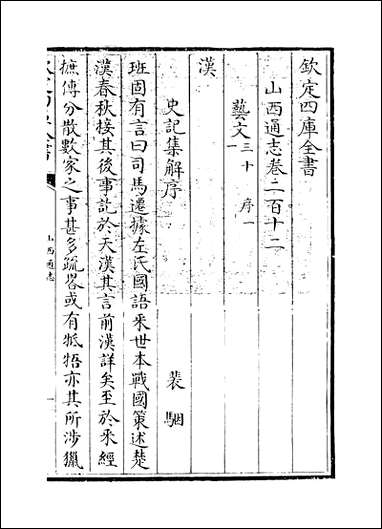 欽定四庫全書
山西通志卷二百十二
藝文三十一 序一
漢
史記集解序 裴駰
班固有言曰司馬遷據左氏國語采世本戰國策述楚
漢春秋接其後事訖於天漢其言前漢詳矣至於采經
摭傳分散數家之事甚多疏畧或有牴牾亦其所涉獵
山西通志
一